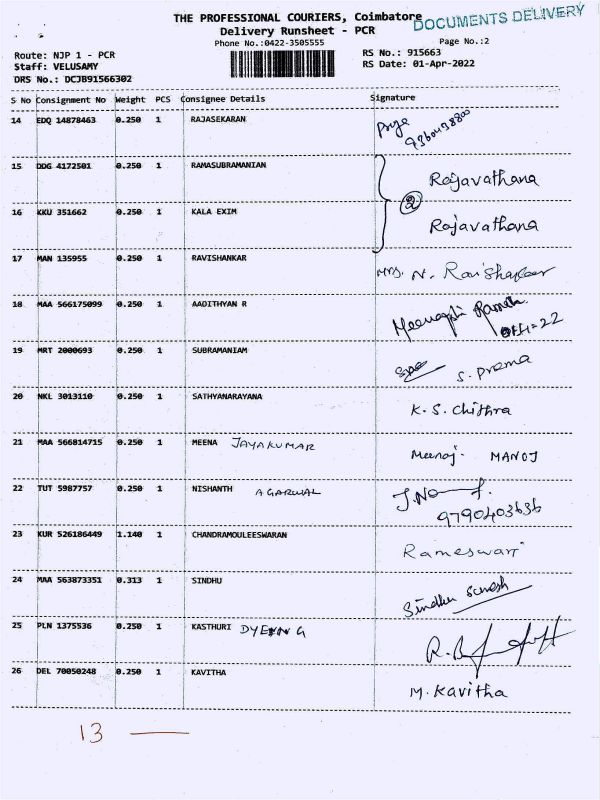 THE PROFESSIONAL COURIERS, Coimbatore
DOCUMENTS DELIVERY
Delivery Runsheet - PCR
Phone No.:0422-3505555 Page No.:2
Route: NJP 1 - PCR RS No.: 915663
Staff: VELUSAMY RS Date: 01-Apr-2022
DRS No.: DCJB91566302
S No Consignment No Weight PCS Consignee Details Signature
14 EDQ 14878463 0.250 1 RAJASEKARAN
15 DDG 4172501 0.250 1 RAMASUBRAMANIAN Rajavathana
2
16 KKU 351662 0.250 1 KALA EXIM Rajavathana
17 MAN 135955 0.250 1 RAVISHANKAR Mrs. N. Ravishankar
18 MAA 566175099 0.250 1 AADITHYAN R
19 MRT 2000693 0.250 1 SUBRAMANIAM S. Prema
20 NKL 3013110 0.250 1 SATHYANARAYANA K. S. Chithra
21 MAA 566814715 0.250 1 MEENA JAYAKUMAR Meenaj. MANOJ
22 TUT 5987757 0.250 1 NISHANTH AGARWAL
9790403636
23 KUR 526186449 1.140 1 CHANDRAMOULEESWARAN Rameswari
24 MAA 563873351 0.313 1 SINDHU Sindhu Suresh
25 PLN 1375536 0.250 1 KASTHURI DYEING
26 DEL 70050248 0.250 1 KAVITHA M. Kavitha
13